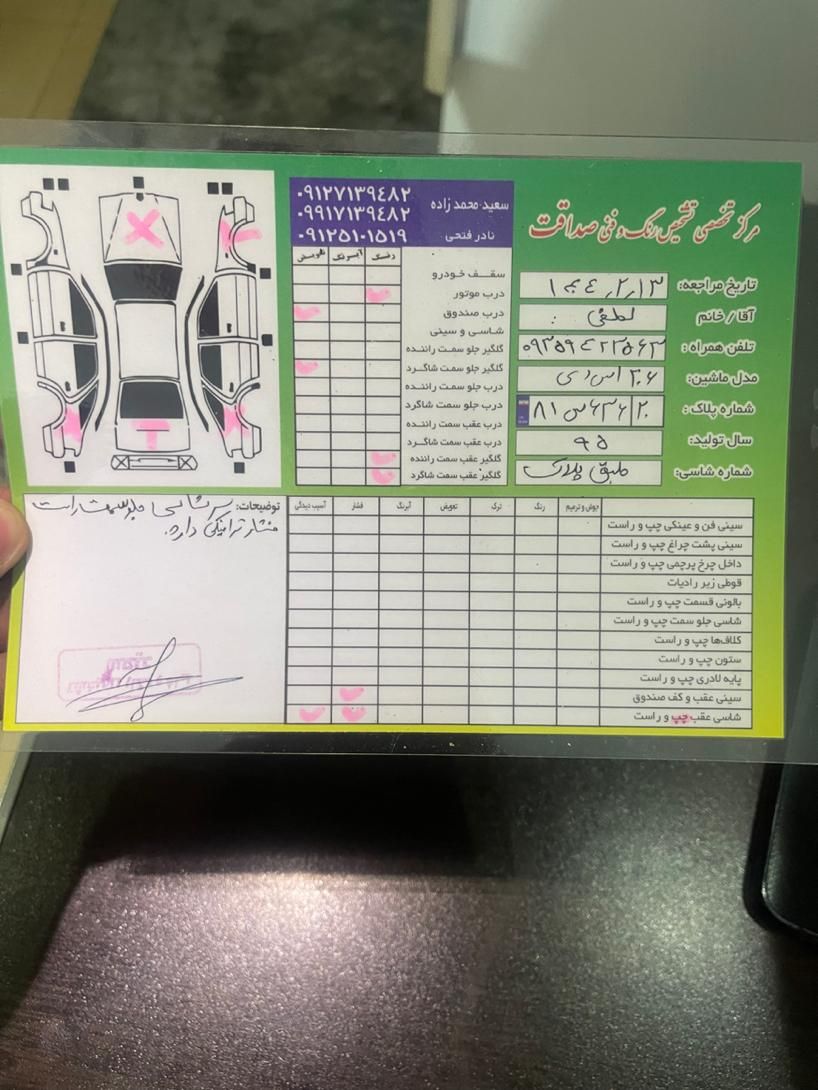 مرکز تخصصی تشخیص رنگ و فنی صداقت
سعید محمد زاده
۰۹۱۲۷۱۳۹٤۸۲
۰۹۹۱۷۱۳۹٤۸۲
نادر فتحی
۰۹۱۲۵۱۰۱۵۱۹
تاریخ مراجعه: ۱۴۰٤٫۲٫۱۳
آقا / خانم : لطفی
تلفن همراه:
مدل ماشین: ۲۰۶ اس دی
شماره پلاک:
سال تولید: ۹۵
شماره شاسی: طبق پلاک
رنگ آبرنگ تعویض
سقف خودرو
درب موتور
درب صندوق
شاسی و سینی
گلگیر جلو سمت راننده
گلگیر جلو سمت شاگرد
درب جلو سمت راننده
درب جلو سمت شاگرد
درب عقب سمت راننده
درب عقب سمت شاگرد
گلگیر عقب سمت راننده
گلگیر عقب سمت شاگرد
جوش و ترمیم رنگ ترک تعویض آبرنگ فشار آسیب دیدگی
سینی فن و عینکی چپ و راست
سینی پشت چراغ چپ و راست
داخل چرخ پرچمی چپ و راست
قوطی زیر رادیات
بالونی قسمت چپ و راست
شاسی جلو سمت چپ و راست
کلاف‌ها چپ و راست
ستون چپ و راست
پایه لادری چپ و راست
سینی عقب و کف صندوق
شاسی عقب چپ و راست
توضیحات: سر شاسی جلو سمت راست
فشار ترافیکی دارد.